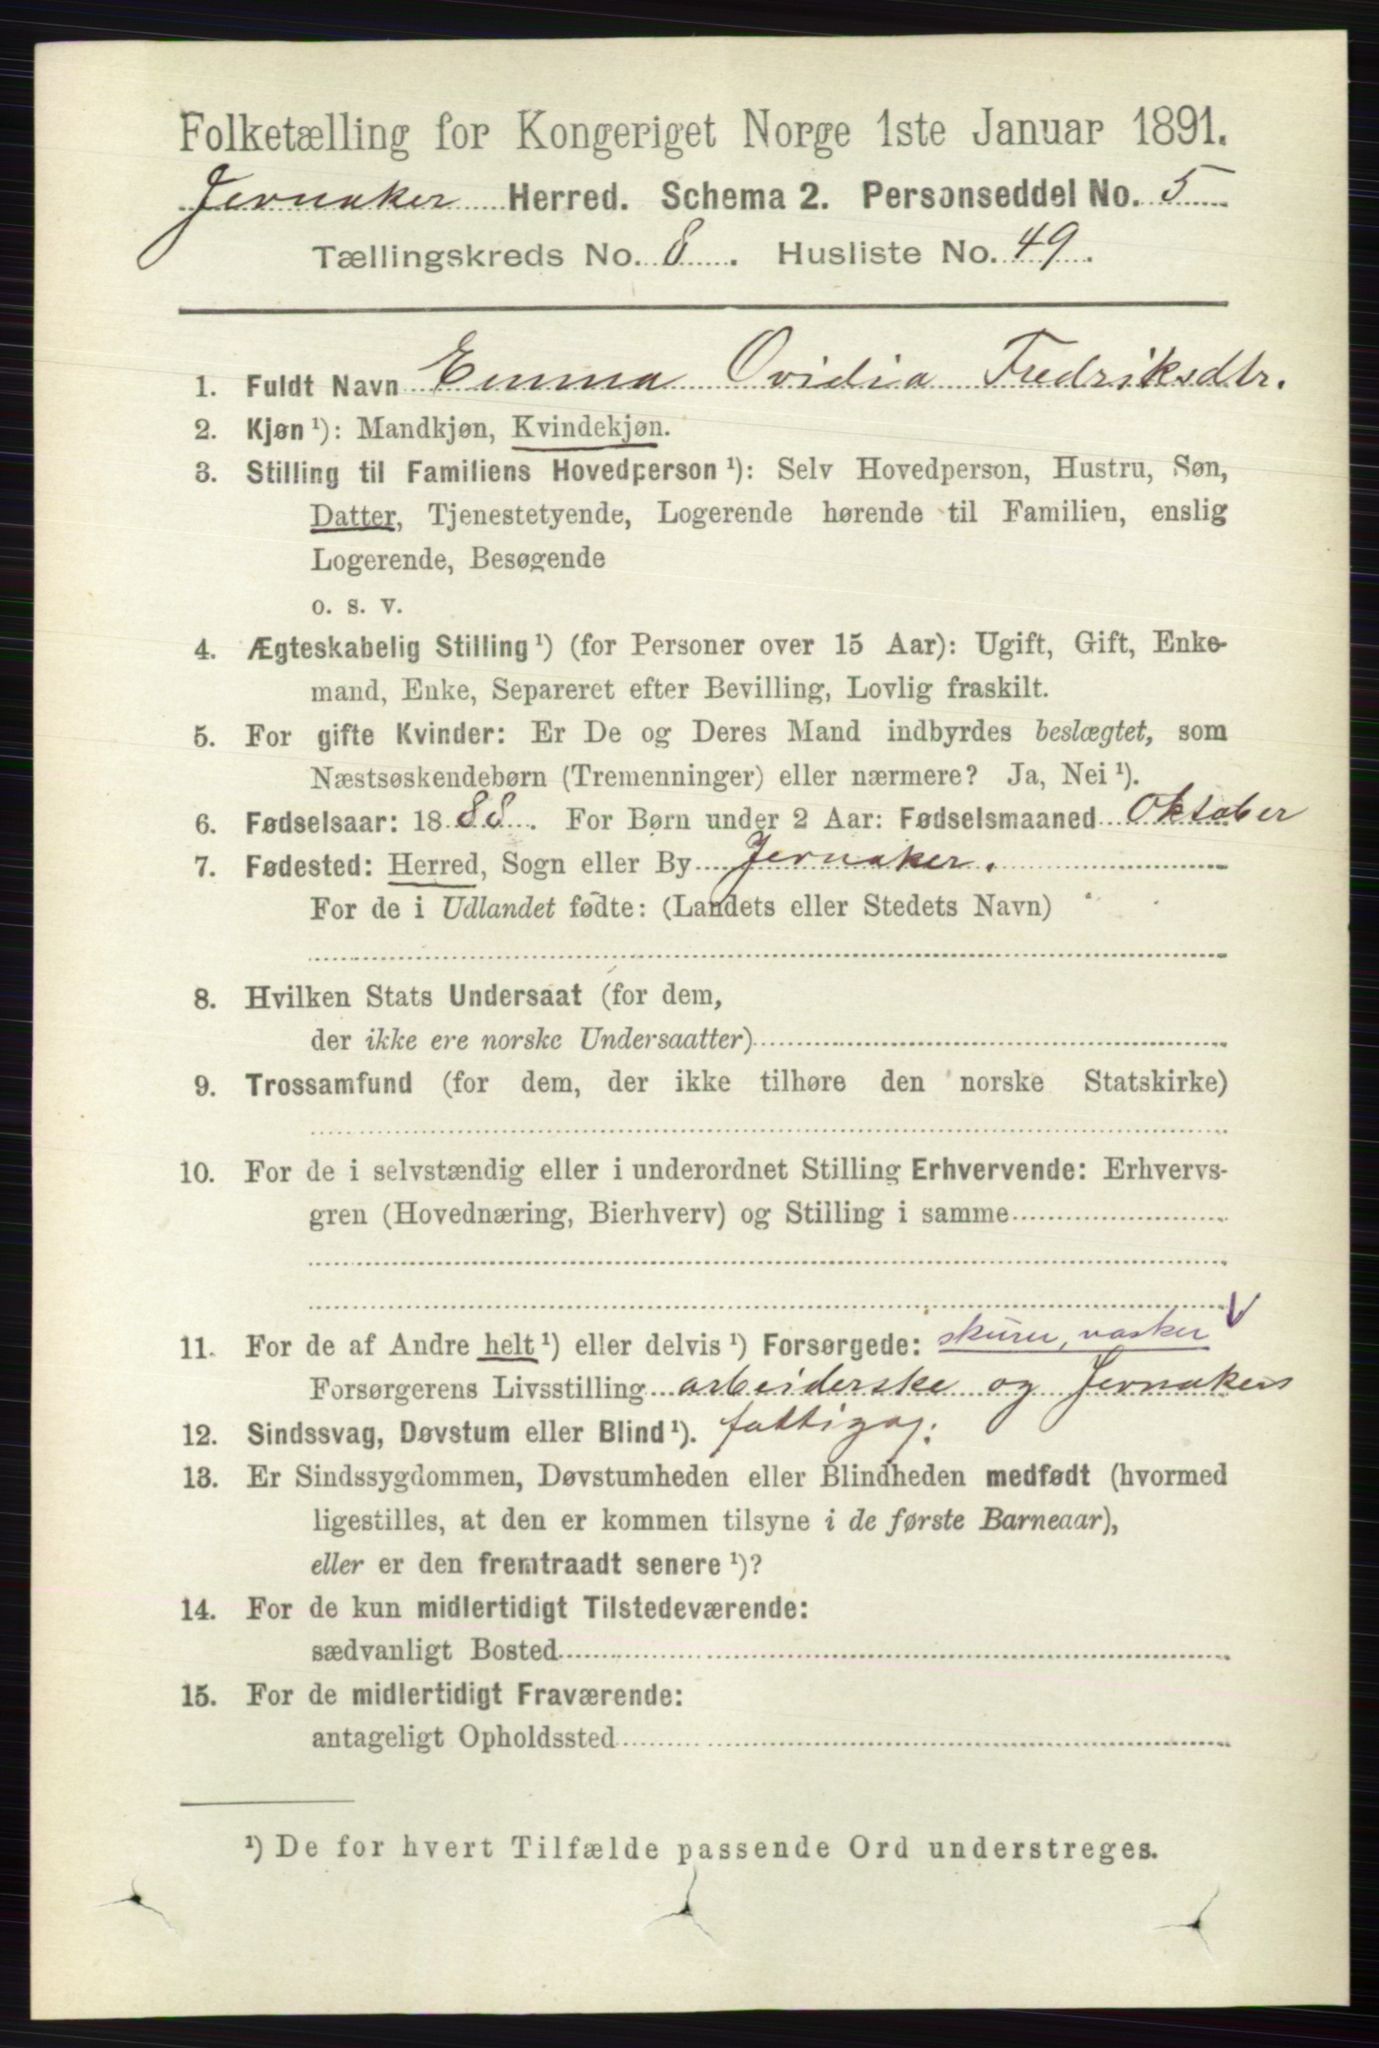 Folketælling for Kongeriget Norge 1ste Januar 1891.
Jevnaker Herred. Schema 2. Personseddel No. 5
Tællingskreds No. 8. Husliste No. 49.
1. Fuldt Navn Emma Ovidia Fredriksdtr.
2. Kjøn¹): Mandkjøn, Kvindekjøn.
3. Stilling til Familiens Hovedperson¹): Selv Hovedperson, Hustru, Søn,
Datter, Tjenestetyende, Logerende hørende til Familien, enslig
Logerende, Besøgende
o. s. v.
4. Ægteskabelig Stilling¹) (for Personer over 15 Aar): Ugift, Gift, Enke-
mand, Enke, Separeret efter Bevilling, Lovlig fraskilt.
5. For gifte Kvinder: Er De og Deres Mand indbyrdes beslægtet, som
Næstsøskendebørn (Tremenninger) eller nærmere? Ja, Nei¹).
6. Fødselsaar: 1888. For Børn under 2 Aar: Fødselsmaaned Oktober
7. Fødested: Herred, Sogn eller By Jevnaker.
For de i Udlandet fødte: (Landets eller Stedets Navn)
8. Hvilken Stats Undersaat (for dem,
der ikke ere norske Undersaatter)
9. Trossamfund (for dem, der ikke tilhøre den norske Statskirke)
10. For de i selvstændig eller i underordnet Stilling Erhvervende: Erhvervs-
gren (Hovednæring, Bierhverv) og Stilling i samme
11. For de af Andre helt¹) eller delvis¹) Forsørgede: skurer, vasker
Forsørgerens Livsstilling arbeiderske og Jevnakers
12. Sindssvag, Døvstum eller Blind¹). fattigv.
13. Er Sindssygdommen, Døvstumheden eller Blindheden medfødt (hvormed
ligestilles, at den er kommen tilsyne i de første Barneaar),
eller er den fremtraadt senere¹)?
14. For de kun midlertidigt Tilstedeværende:
sædvanligt Bosted
15. For de midlertidigt Fraværende:
antageligt Opholdssted
¹) De for hvert Tilfælde passende Ord understreges.